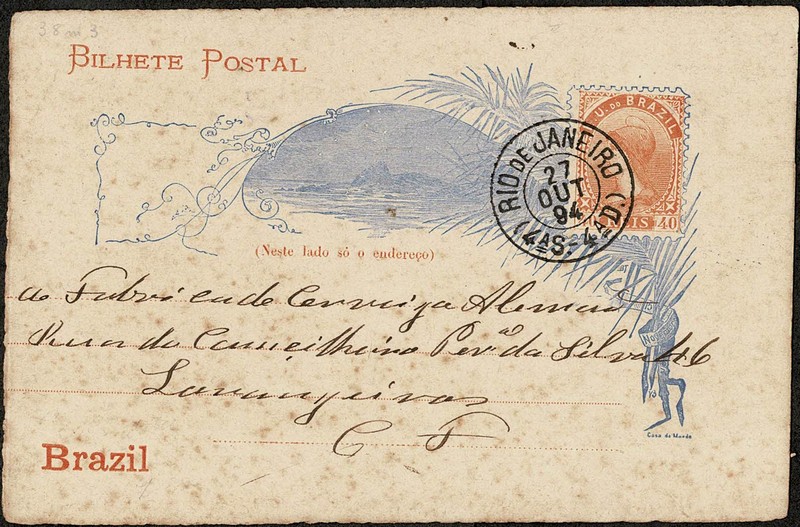 38 m 3
BILHETE POSTAL
U. DO BRAZIL
REIS 40
RIO DE JANEIRO
27
OUT
94
(4ªS.-4ªD.)
(Neste lado só o endereço)
a Fabrica de Cerveija Alemao
Rua do Concelheiro Perª da Silva 46
Laranjeiras
C F
Brazil
Casa da Moeda